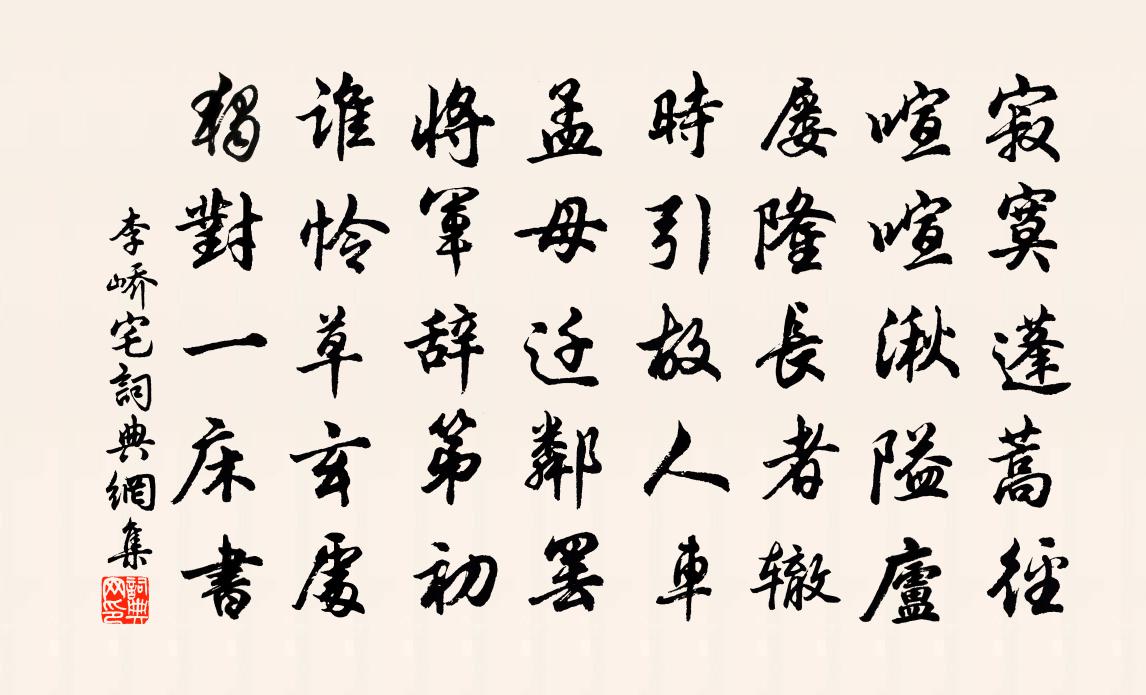 寂寞蓬蒿徑
喧喧湫隘廬
屢隆長者辙
時引故人車
孟母迁鄰罢
將軍辞第初
谁怜草玄處
獨對一床書
李嶠宅詞典網集
詞典网印